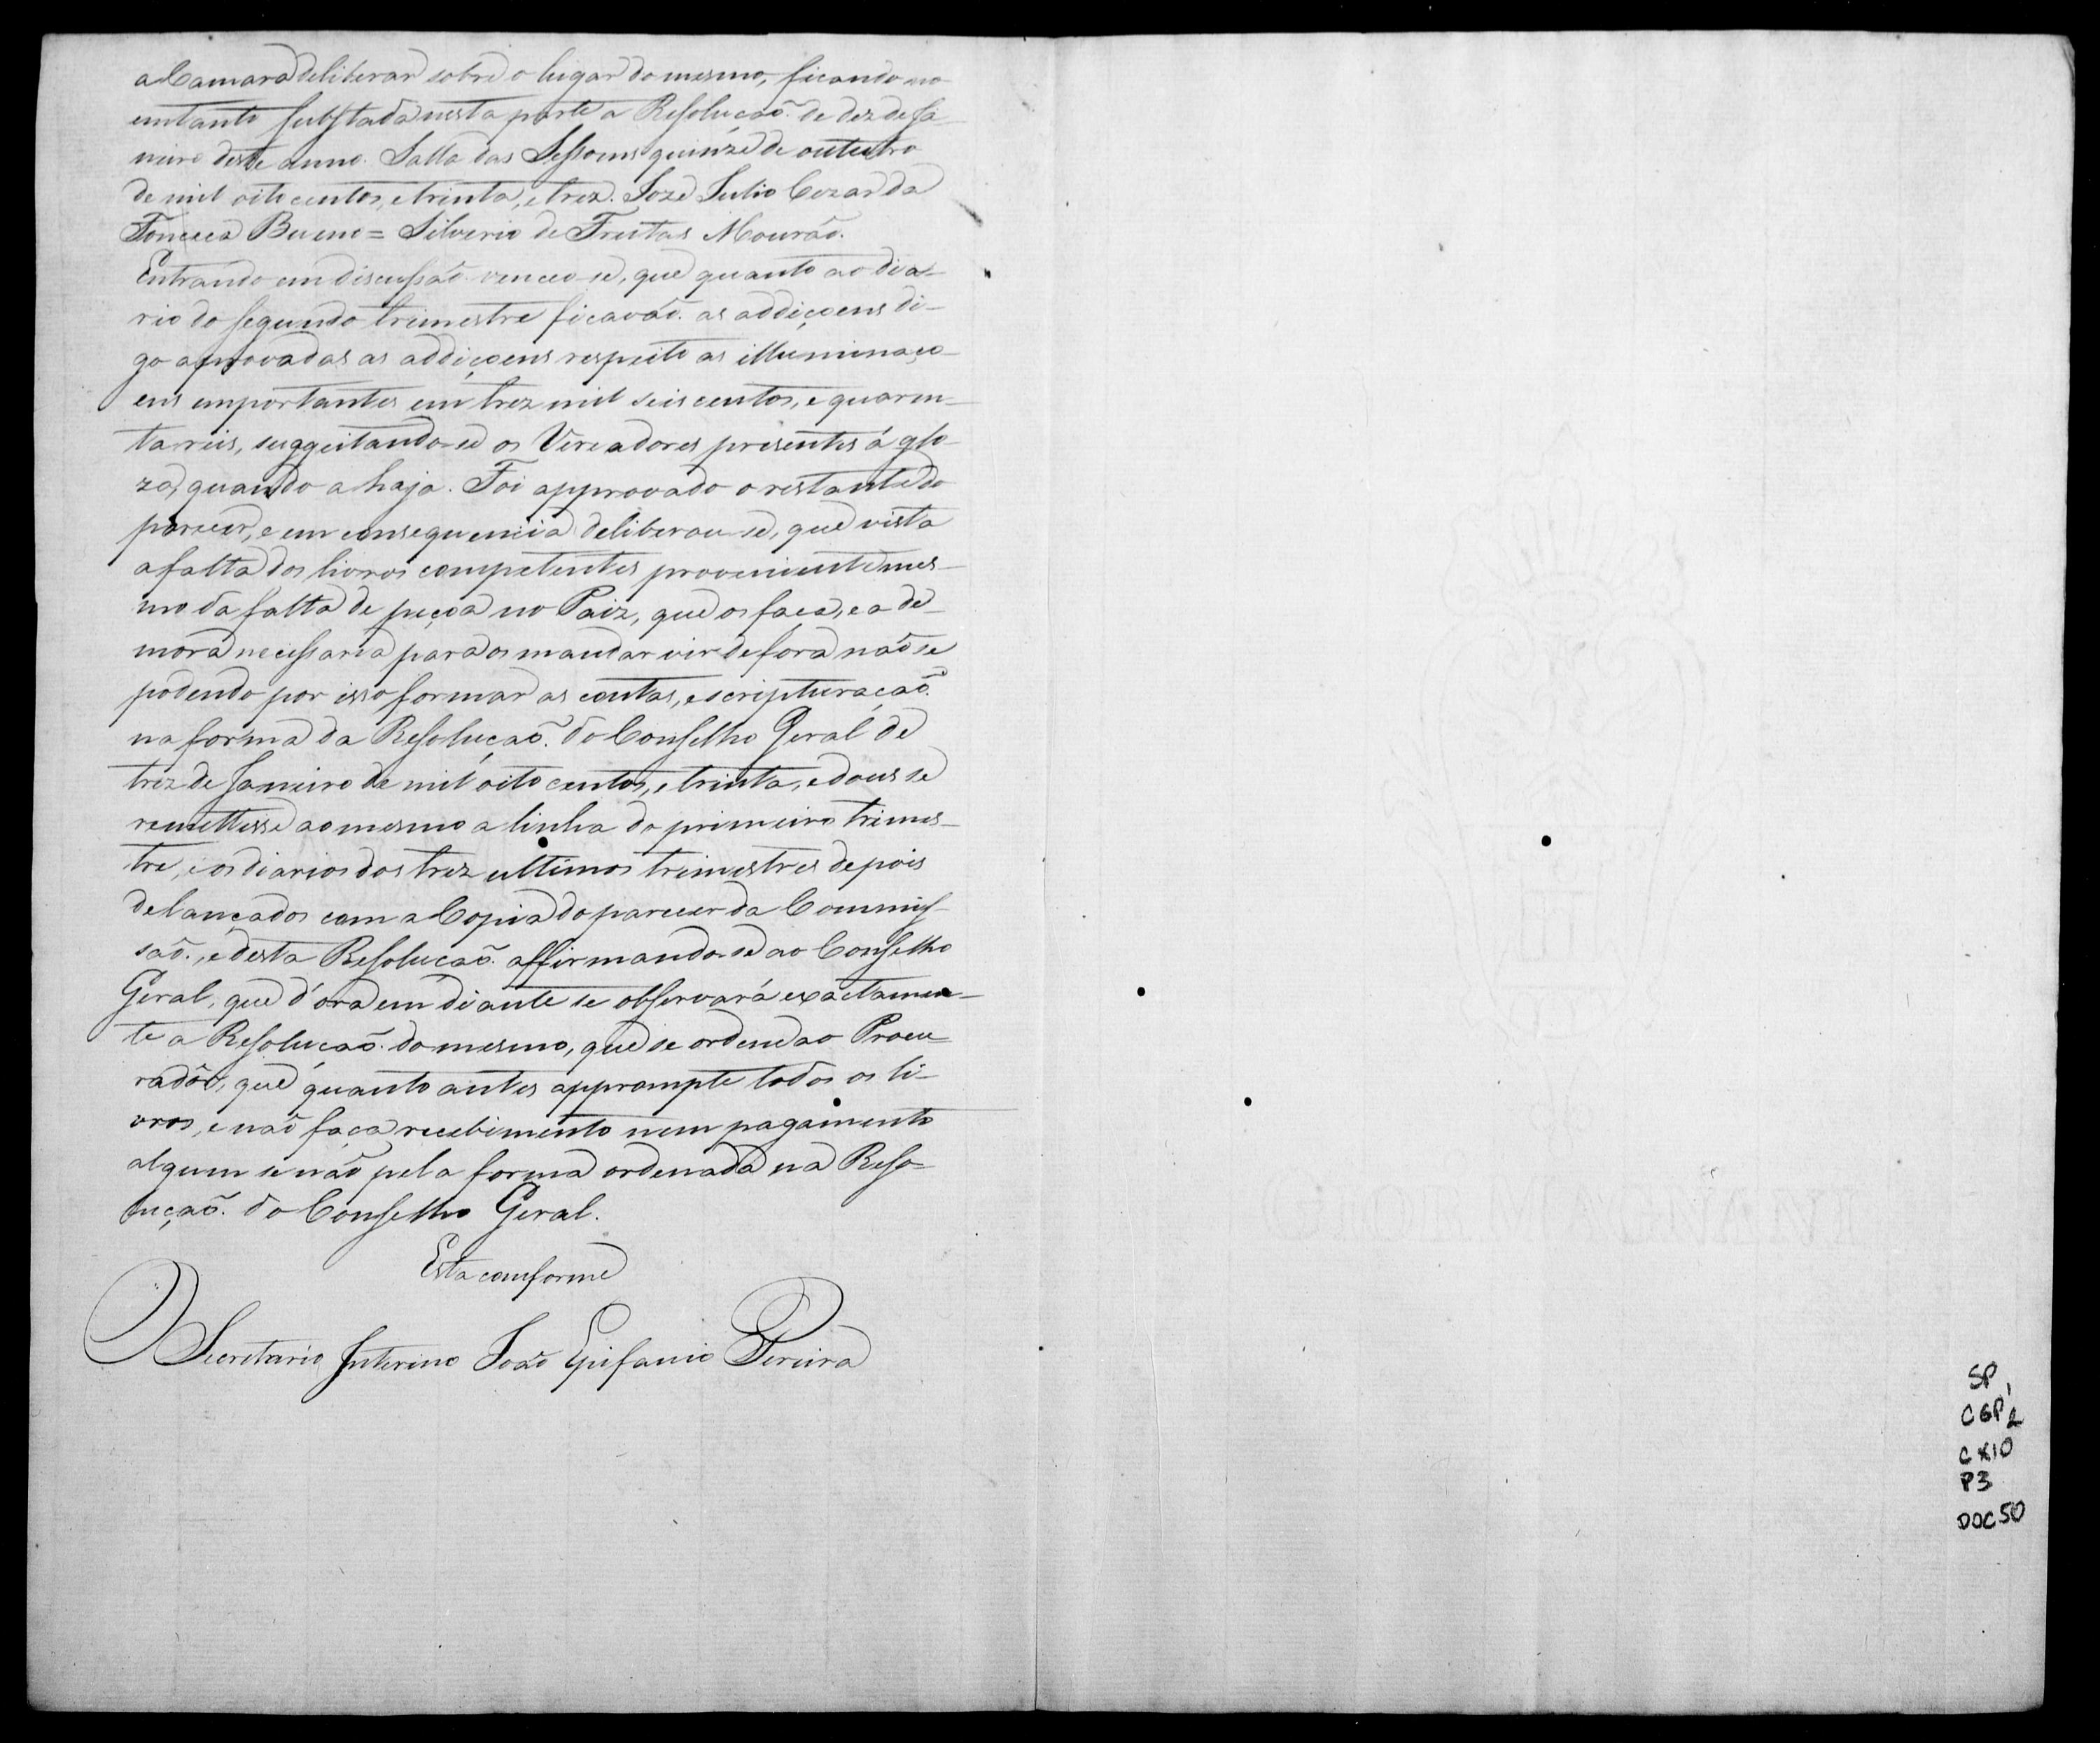 a Camara deliberar sobre o lugar do mesmo, ficando no
emtanto substada nesta parte a Resolucaõ. de dez de Ja-
neiro deste anno. Salla das Sessoens quinze de outubro
de mil oito centos, e trinta, e trez. Joze Julio Cezar da
Fonceca Bueno = Silverio de Freitas Mouraõ.
Entrando em discussaõ venceo-se, que quanto ao dia-
rio do segundo trimestre ficavaõ. as addiçoens di-
go aprovadas as addiçoens respeito as illuminaço-
ens emportantes em trez mil seis centos, e quaren-
ta reis, suggeitando-se os Vereadores presentes á glo-
za, quando a haja. Foi approvado o restante do
parecer, e em consequencia deliberou-se, que vista
a falta dos livros competentes proveniente mes-
mo da falta de peçoa no Paiz, que os faça, e a de-
mora necessaria para os mandar vir de fora naõ se
podendo por isso formar as contas, e scripturaçaõ.
na forma da Resoluçaõ. do Conselho Geral de
trez de Janeiro de mil oito centos, e trinta, e dous se
remettesse ao mesmo a linha do primeiro trimes-
tre, e os diarios dos trez ultimos trimestres depois
de lançados com a Copia do parecer da Commis-
saõ., e desta Resolucaõ. affirmando-se ao Conselho
Geral, que d'ora em diante se observará exactamen-
te a Resolucaõ. do mesmo, que se ordene ao Procu-
rador, que quanto antes apprompte todos os li-
vros, e naõ faça recebimento nem pagamento
algum se naõ pela forma ordenada na Reso-
luçaõ. do Conselho Geral.
Esta conforme
O Secretario Interino João Epifanio Pereira
SP,
CGP 2
CX10
P3
DOC 50